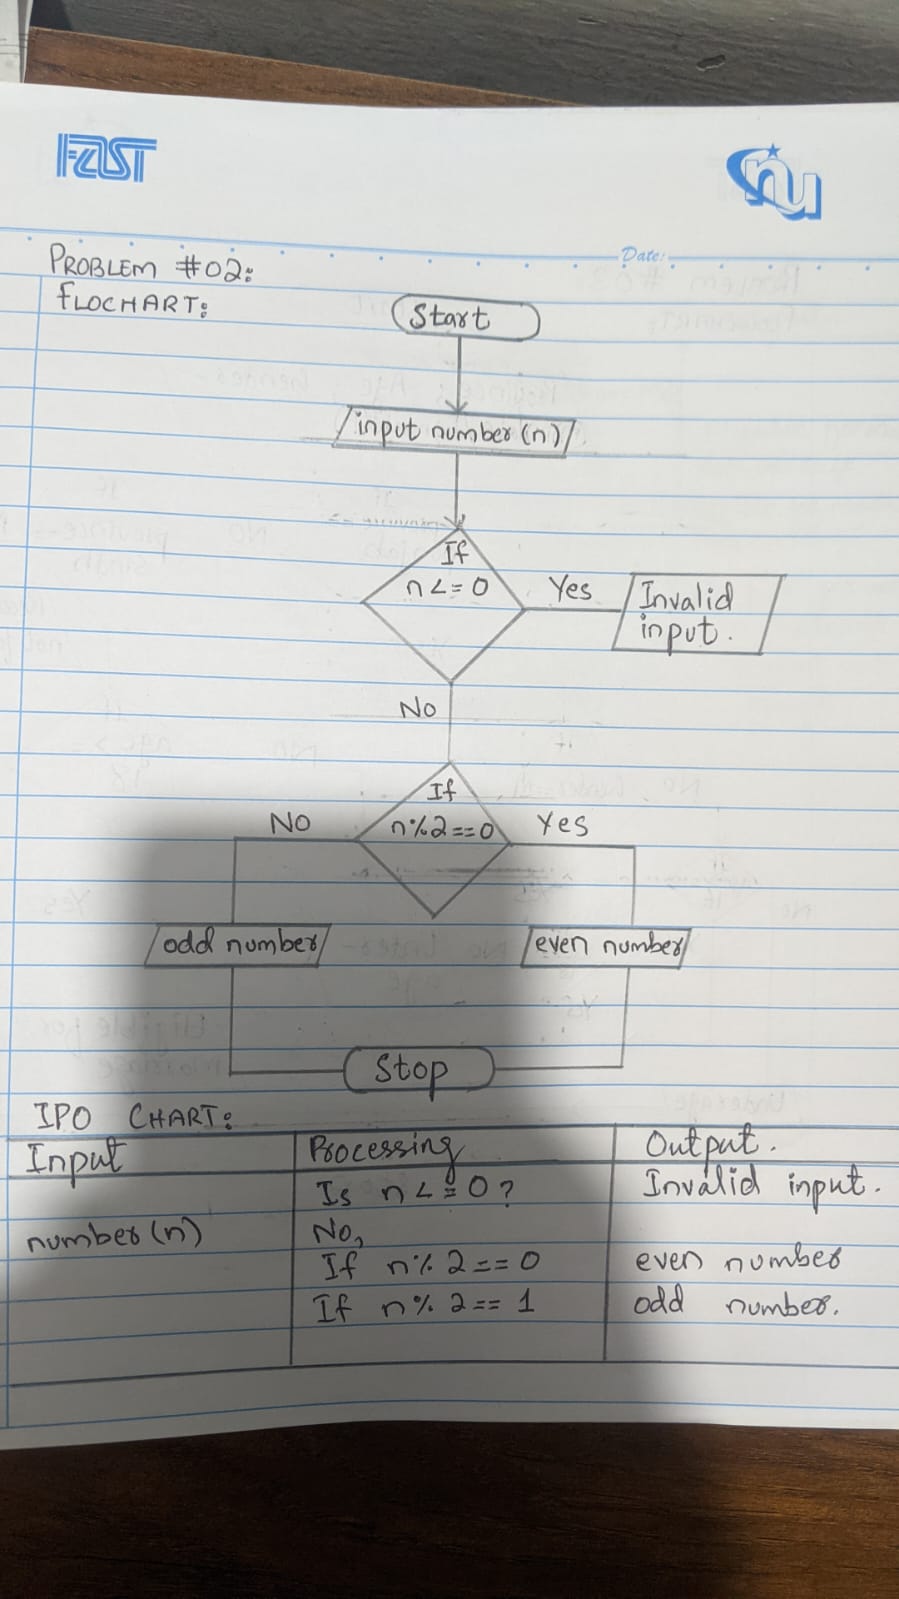 FAST
nu
Date:
PROBLEM #02:
FLOCHART:
Start
input number (n)
If
n <= 0
Yes
Invalid
input.
No
If
n%2==0
NO
Yes
odd number
even number
Stop
IPO CHART:
Input Processing Output.
Is n <= 0? Invalid input.
number (n) No,
If n % 2 == 0 even number
If n % 2 == 1 odd number.